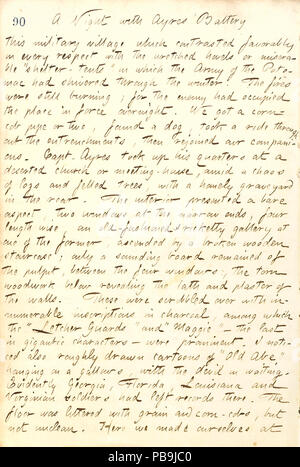 90
A Night with Ayres Battery
this military village which contrasted favorably
in every respect with the wretched hards or misera-
ble "shelter-tents" in which the Army of the Poto-
mac had shivered through the winter. The fires
were still burning; for the enemy had occupied
the place in force overnight. We got a corn-
cob pipe or two, found a dog, took a ride through
out the entrenchments, then rejoined our compani-
ons. Capt. Ayres took up his quarters at a
deserted church or meeting-house, amid a chaos
of logs and felled trees, with a homely graveyard
in the rear. The interior presented a bare
aspect, two windows at the narrow ends, four
length wise; an old-fashioned ricketty gallery at
one of the former, ascended by a broken wooden
staircase; only a sounding board remained of
the pulpit, between the four windows; the torn
woodwork below revealing the lath and plaster of
the walls. These were scribbled over with in-
numerable inscriptions in charcoal among which
the "Letcher Guards" and "Maggie" - the last
in gigantic characters - were prominent. I noti-
ced also roughly drawn cartoons of "Old Abe"
hanging on a gallows, with the devil in waiting.
Evidently Georgia, Florida Louisiana and
Virginian soldiers had left records there. The
floor was littered with grain and corn-cobs, but
not unclean. Here we made ourselves at
alamy
Image ID: PB9JC0
www.alamy.com